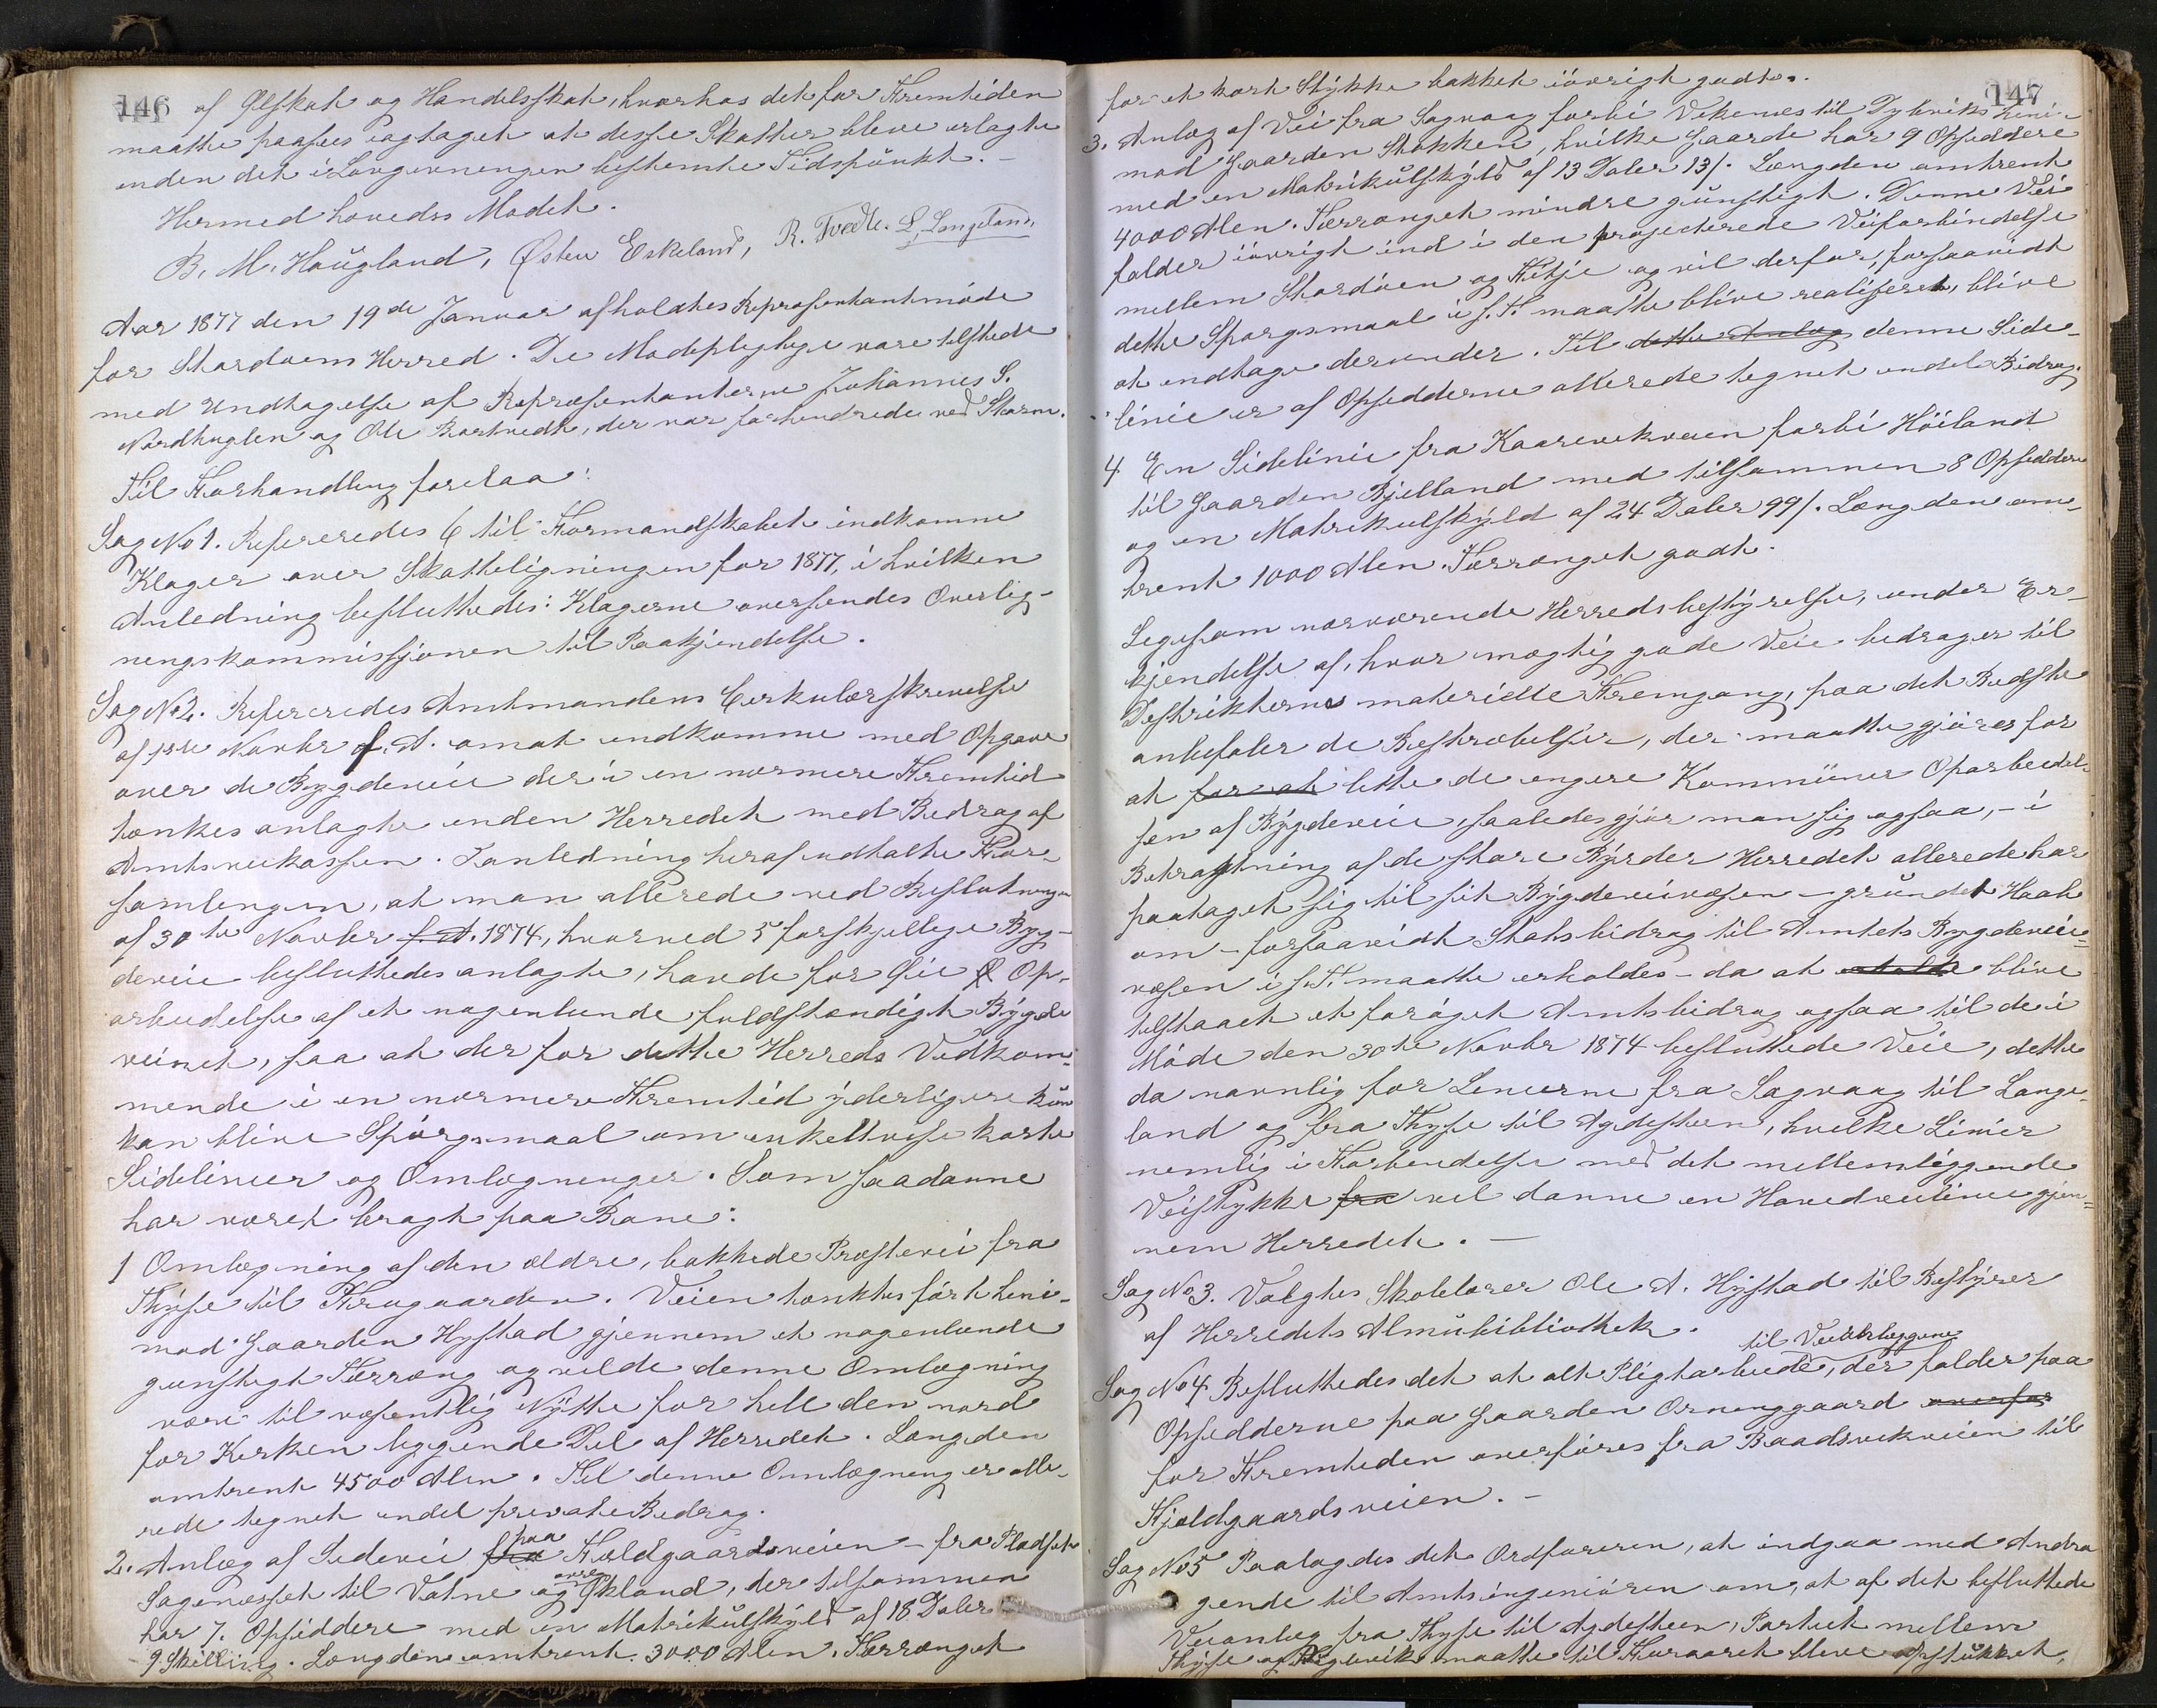 146
af Ølskat og Handelsskat, hvorhos det for Fremtiden
maatte paasees iagtaget at disse Skatter bleve erlagte
inden det i Lovgivningen bestemte Tidspunkt. –
Hermed hævedes Mødet.
B. M. Haugland, Østen Eskeland, R. Tvedte. L. Langeland.
Aar 1877 den 19de Januar afholdtes Repræsentantmøde
for Stordøens Herred. De Mødepligtige vare tilstede
med Undtagelse af Repræsentanterne Johannes S.
Nordhuglen og Ole Bortvedt, der var forhindrede ved Storm.
Til Forhandling forelaa:
Sag No 1. Refereredes 6 til Formandskabet indkomne
Klager over Skatteligningen for 1877, i hvilken
Anledning besluttedes: Klagerne oversendes Overlig-
ningskommissjonen til Paakjendelse.
Sag No 2. Refereredes Amtmandens Cirkulærskrivelse
af 1ste Novbr f. A. om at indkomme med Opgave
over de Bygdeveie der i en nærmere Fremtid
tænkes anlagte inden Herredet med Bidrag af
Amtsveikassen. I anledning heraf udtalte For-
samlingen, at man allerede ved Beslutningen
af 30te Novbr f. A. 1874, hvorved 5 forskjellige Byg-
deveie besluttedes anlagte, havde for Øie Op-
arbeidelse af et nogenlunde fuldstændigt Bygde
veinet, saa at der for dette Herreds Vedkom-
mende i en nærmere Fremtid yderligere kun
kan blive Spørgsmaal om enkeltvise korte
Sidelinier og Omlægninger. Som saadanne
har været bragt paa Bane:
1 Omlægning af den ældre, bakkede Præstevei fra
Thyse til Frugaarden. Veien tænktes ført heni-
mod Gaarden Hystad gjennem et nogenlunde
gunstigt Terræng og vilde denne Omlægning
være til væsentlig Nytte for hele den nord
for Kirken liggende Del af Herredet. Længden
omtrent 4500 Alen. Til denne Omlægning er alle-
rede tegnet endel private Bidrag.
2. Anlæg af Sidevei fra paa Fældgaardsveien – fra Pladset
Sagenesset til Vatne og øvre Ekland, der tilsammen
har 7. Opsiddere med en Matrikulskyld af 18 Daler
9 Skilling. Længden omtrent 3000 Alen. Terrænget
147
for et kort Stykke bakket iøvrigt godt.
3. Anlæg af Vei fra Sagvaag forbi Vekenes til Dybviks heni-
mod Gaarden Stokken, hvilke Gaarde har 9 Opsiddere
med en Matrikulskyld af 13 Daler 13/. Længden omtrent
4000 Alen. Terrænget mindre gunstigt. Denne Vei
falder iøvrigt ind i den projecterede Veiforbindelse
mellem Stordøen og Fitje og vil derfor, forsaavidt
dette Spørgsmaal i s. T. maatte blive realiseret, blive
at indtage derunder. Til dette Anlæg denne Side-
linie er af Opsidderne allerede tegnet endel Bidrag.
4 En Sidelinie fra Kaarevikveien forbi Höiland
til Gaarden Bjelland med tilsammen 8 Opsiddere
og en Matrikulskyld af 24 Daler 99/. Længden om-
trent 1000 Alen. Terrænget godt.
Ligesom nærværende Herredsbestyrelse, under Er-
kjendelse af, hvor mægtig gode Veie bidrager til
Distrikternes materielle Fremgang, paa det Bedste
anbefaler de Bestræbelser, der maatte gjøres for
at for at lette de engere Kommüner Oparbeidel-
sen af Bygdeveie, saaledes gjør man sig ogsaa, – i
Betragtning af de store Byrder Herredet allerede har
paataget sig til sit Bygdeveivæsen – grundet Haab
om – forsaavidt Statsbidrag til Amtets Bygdevei-
væsen i s. T. maatte erholdes – da at erholde blive
tilstaaet et forøget Amtsbidrag ogsaa til de i
Møde den 30te Novbr 1874 besluttede Veie, dette
da navnlig for Linierne fra Sagvaag til Lange-
land og fra Thyse til Agdesteen, hvilke Linier
nemlig i Forbindelse med det mellemliggende
Veistykke fra vil danne en Hovedveilinie gjen-
nem Herredet. –
Sag No 3. Valgtes Skolelærer Ole A. Hystad til Bestyrer
af Herredets Almübibliothek.
Sag No 4. Besluttedes det at alt Pligtarbeide til Veivedligeholdelse, der falder paa
Opsidderne paa Gaarden Orninggaard overfør
for Fremtiden overføres fra Baadsvikveien til
Fjeldgaardsveien. –
Sag No 5 Paalagdes det Ordføreren, at indgaa med Andra
gende til Amtsingeniøren om, at af det besluttede
Veianlæg fra Thyse til Agdesteen, Partiet mellem
Thyse og Digervik maatte til Foraaret blive opstukket,